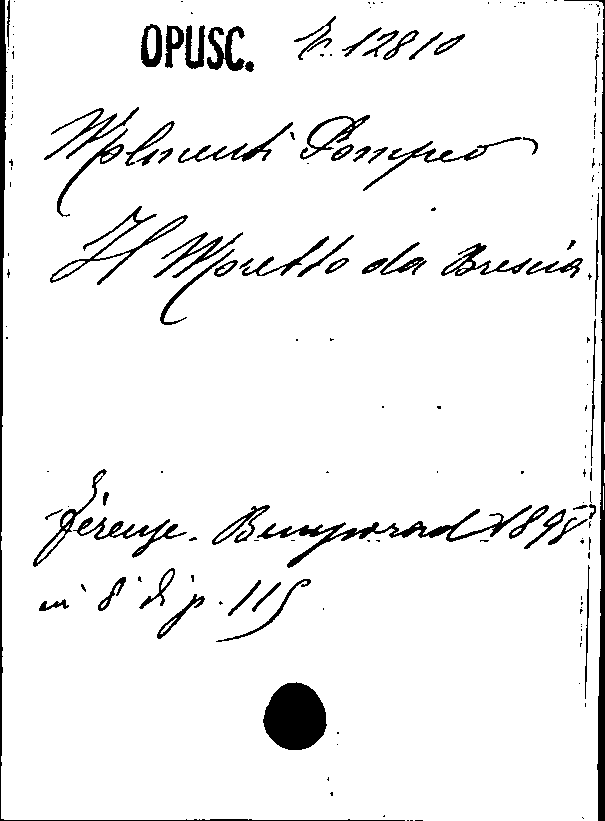 OPUSC. E. 12810
Molmenti Pompeo
Il Moretto da Brescia.
Firenze. Bemporad 1898
in 8° di p. 115